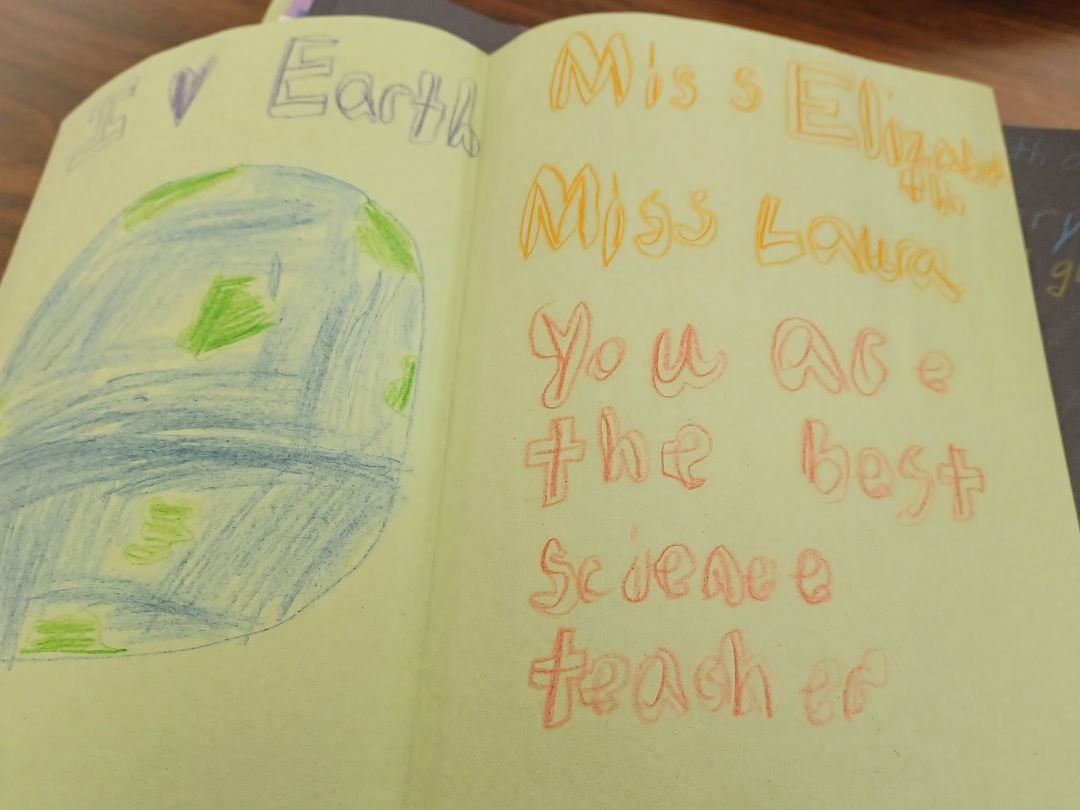 I ♥ Earth
Miss Elizabeth
Miss Laura
You are
the best
science
teacher